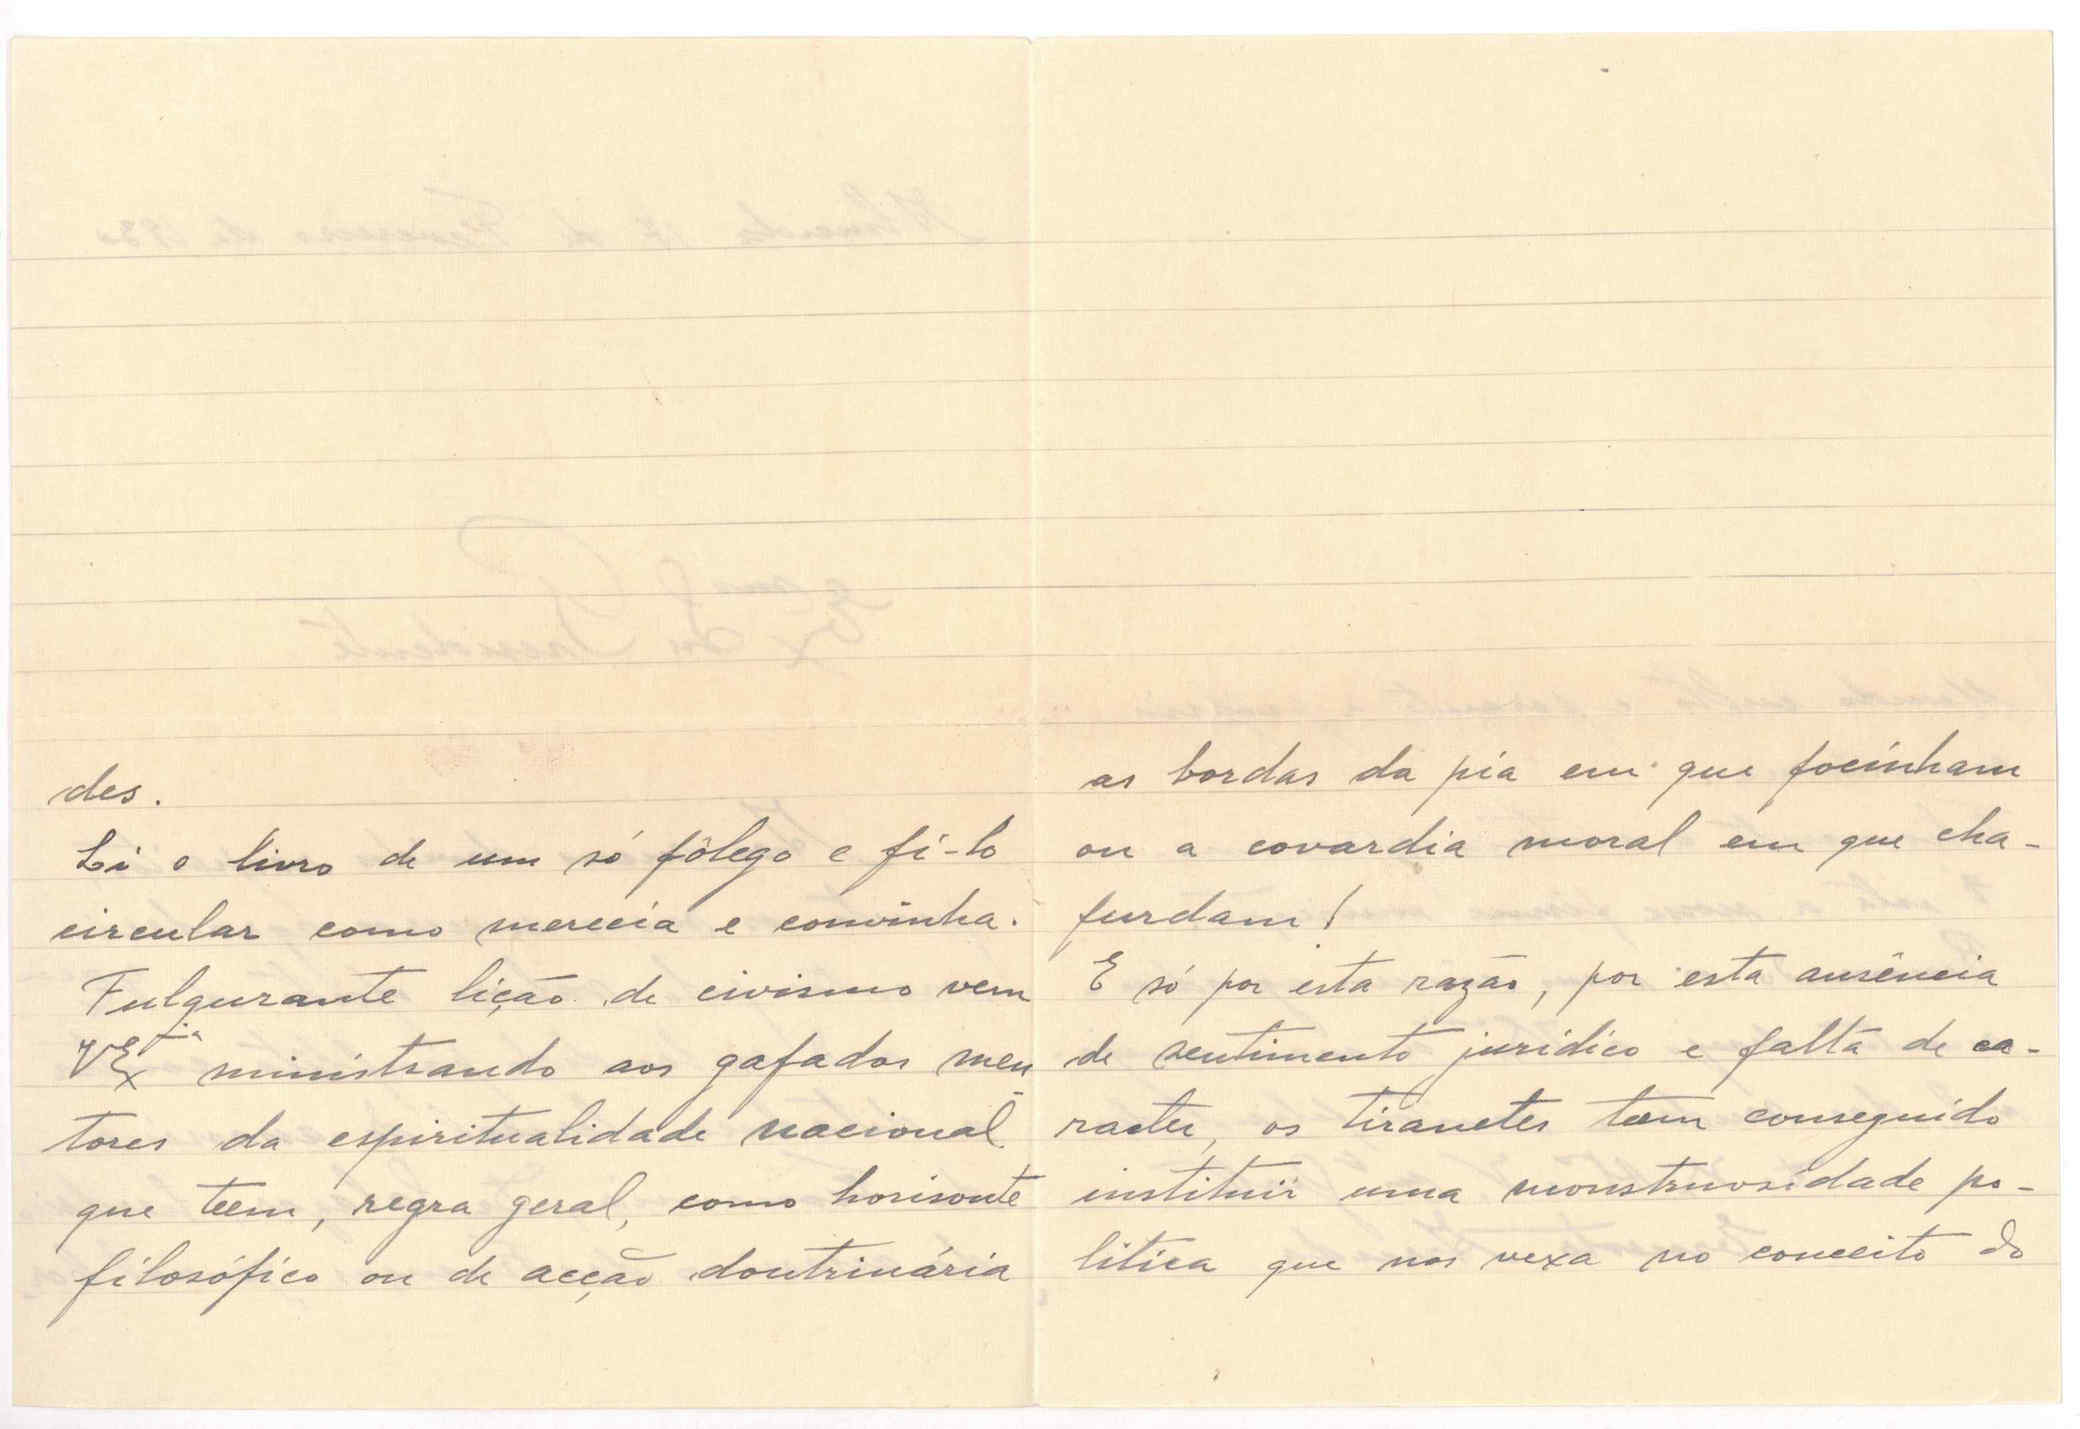 des.
Li o livro de um só fôlego e fi-lo
circular como merecia e convinha.
Fulgurante lição de civismo vem
VEx.cia ministrando aos gafados men
tores da espiritualidade nacional
que teem, regra geral, como horisonte
filosófico ou de acção doutrinária
as bordas da pia em que focinham
ou a covardia moral em que cha-
furdam!
E só por esta razão, por esta ausência
de sentimento juridico e falta de ca-
racter, os tiranetes teem conseguido
instituir uma monstruosidade po-
litica que nos vexa no conceito do